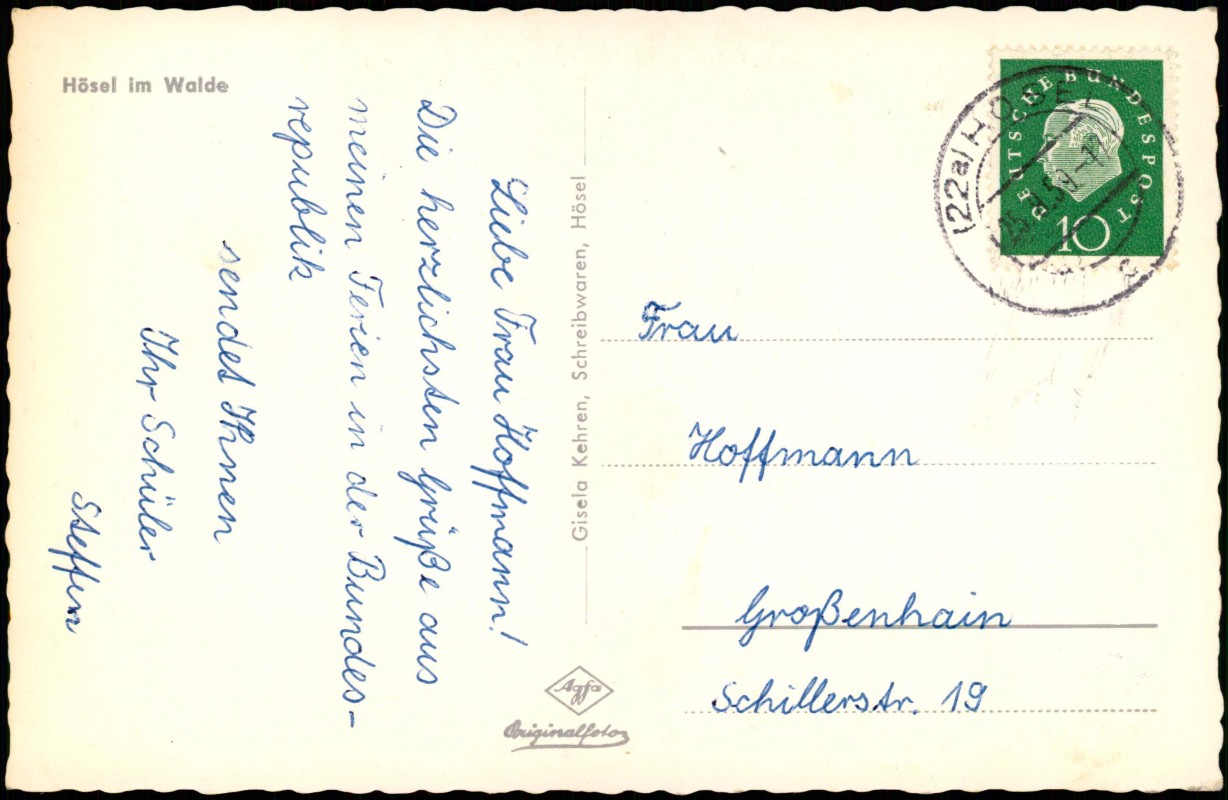 Hösel im Walde
Liebe Frau Hoffmann!
Die herzlichsten Grüße aus
meinen Ferien in der Bundes-
republik
sendet Ihnen
Ihr Schüler
Steffen
Gisela Kehren, Schreibwaren, Hösel
Agfa
Originalfoto
DEUTSCHE BUNDESPOST
10
(22a) HÖSEL
Frau
Hoffmann
Großenhain
Schillerstr. 19